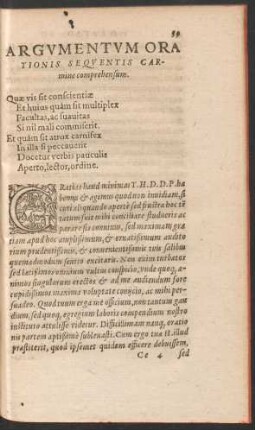 59
ARGVMENTVM ORA
TIONIS SEQVENTIS CAR-
mine comprehensum.
Quæ vis sit conscientiæ
Et huius quàm sit multiplex
Facultas, ac suauitas
Si nil mali commiserit.
Et quàm sit atrox carnifex
In illa si peccauerit
Docetur verbis pauculis
Aperto, lector, ordine.
GRatias haud minimas T. H. D. D. P. ha
bemus & agimus quod non inuidiam, si
cum aliquando aperte sed frustra hoc
uatim suis mihi conciliare studuerit ac
parare sis connisus, sed maximam gra
tiam apud hoc amplissimum, & ornatissimum audito
rium prudentissimè, & conuenientissimè tuis scitibus
quemodmodum semio excitaris. Non enim turbatis
sed lætissimos omnium vultus conspicio, vnde quoq, a-
nimos singulorum erectos & ad me audiendum fore
cupidissimos maxima voluptate concipio, ac mihi per-
suadeo. Quod tuum erga me officium, non tantum gau
dium, sed quoq, egregium laboris compendium nostro
instituto attulisse videtur. Difficilimam nanq, oratio
nis partem aptissimè subleuasti. Cum ergo tua H. illud
præstiterit, quod ipsemet quidem efficere debuissem,
Cc 4 sed